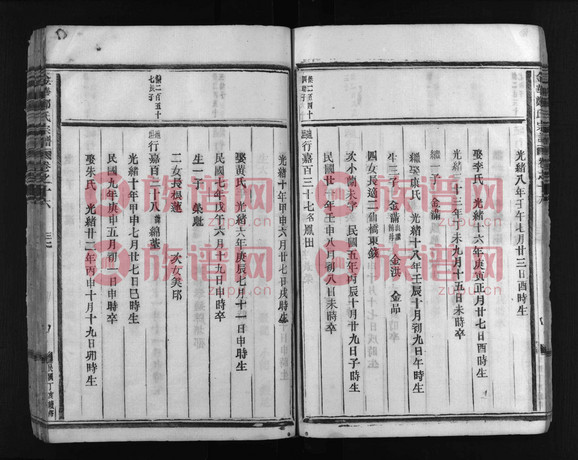 光緒八年壬午七月廿三日酉時生
娶李氏 光緒十六年庚寅正月廿七日酉時生
光緒三十三年丁未九月十五日未時卒
繼一子 金滿
繼娶康氏 光緒十八年壬辰十月初九日午時生
生三子 金滿 金洪 金品
四女長適二仙橋東盛
次小蘭未子 民國五年丙辰十月廿九日子時生
民國廿一年壬申八月初八日未時卒
行嘉百三十七名鳳田
光緒十年甲申六月廿七日戌時生
娶黃氏 光緒六年庚辰七月十一日申時生
民國七年戊午六月十九日申時卒
生一子 榮魁
二女長根蓮 次女美邱
行嘉百三十八 錦葵
光緒十年甲申七月廿七日巳時生
民國九年庚申五月初二日申時卒
娶朱氏 光緒廿二年丙申十月十九日卯時生
族譜网
族譜网
族譜网
族譜网